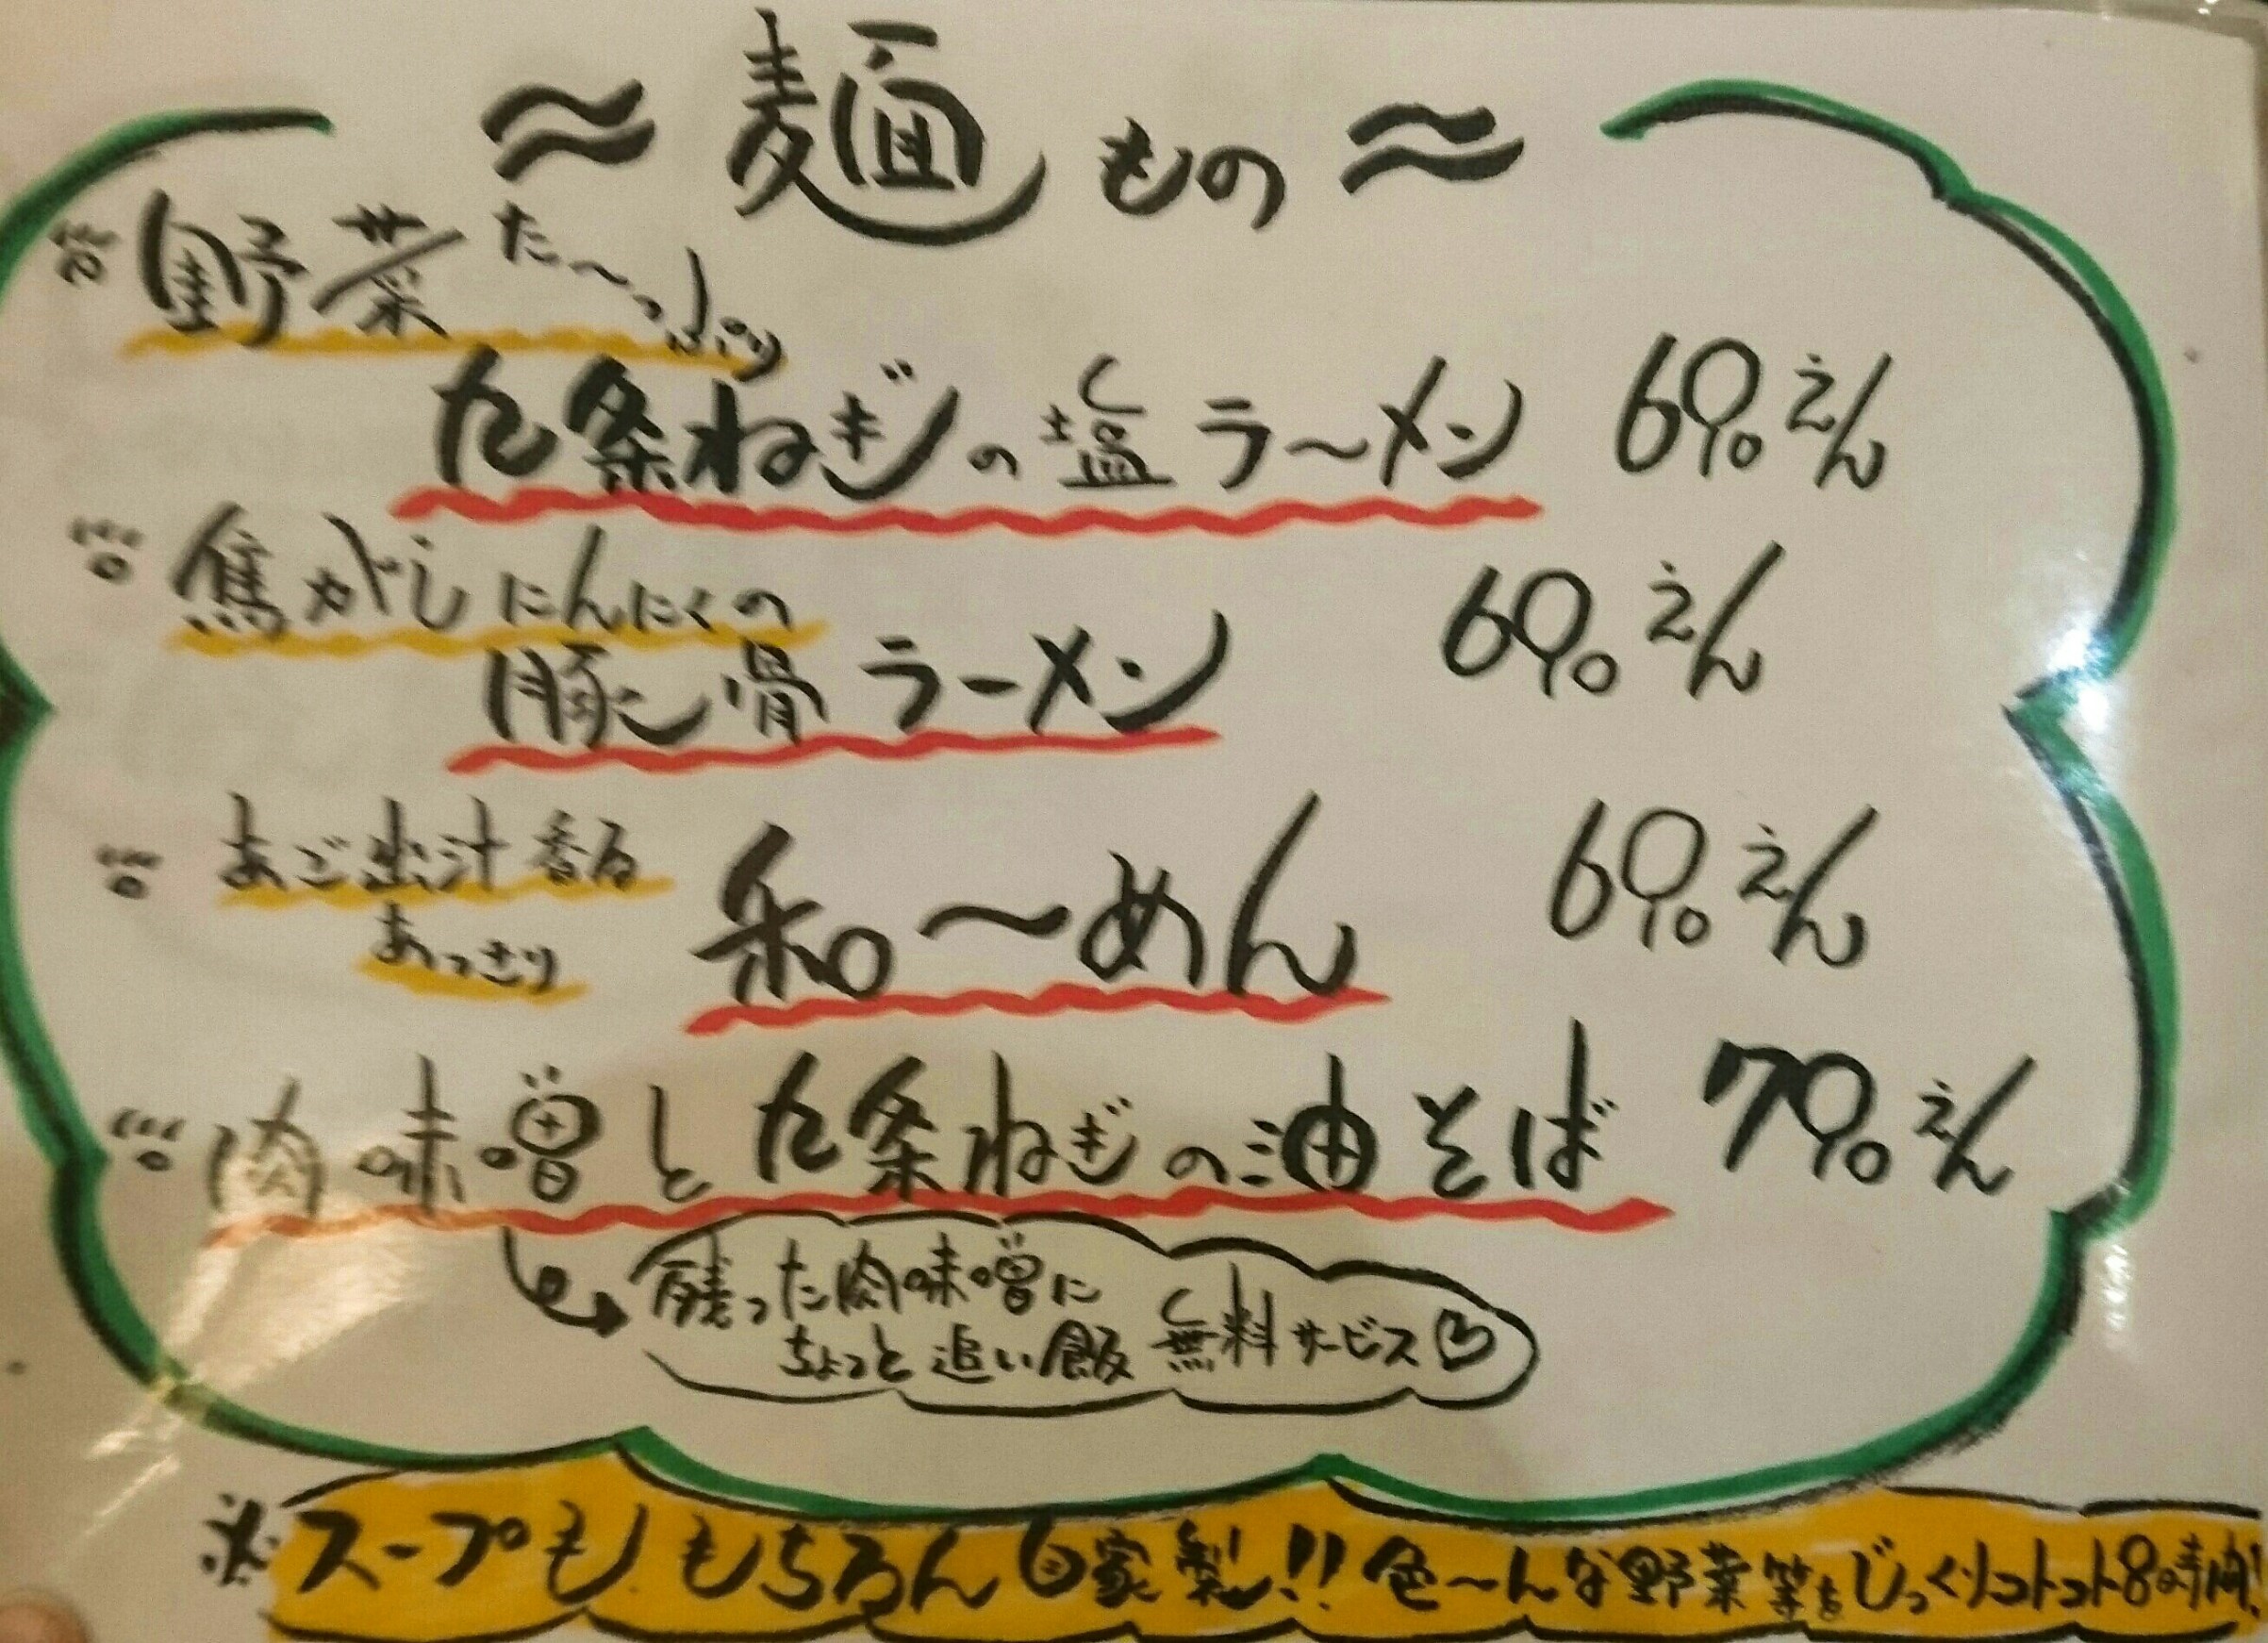 ≈ 麺もの ≈
野菜た〜っぷり
九条ねぎの塩ラ〜メン 690えん
焦がしにんにくの
豚骨ラーメン 690えん
あご出汁香る
あっさり 和〜めん 690えん
肉味噌と九条ねぎの油そば 790えん
残った肉味噌に
ちょっと追い飯 無料サービス
※スープも もちろん自家製!! 色〜んな野菜等をじっくりコトコト8時間!